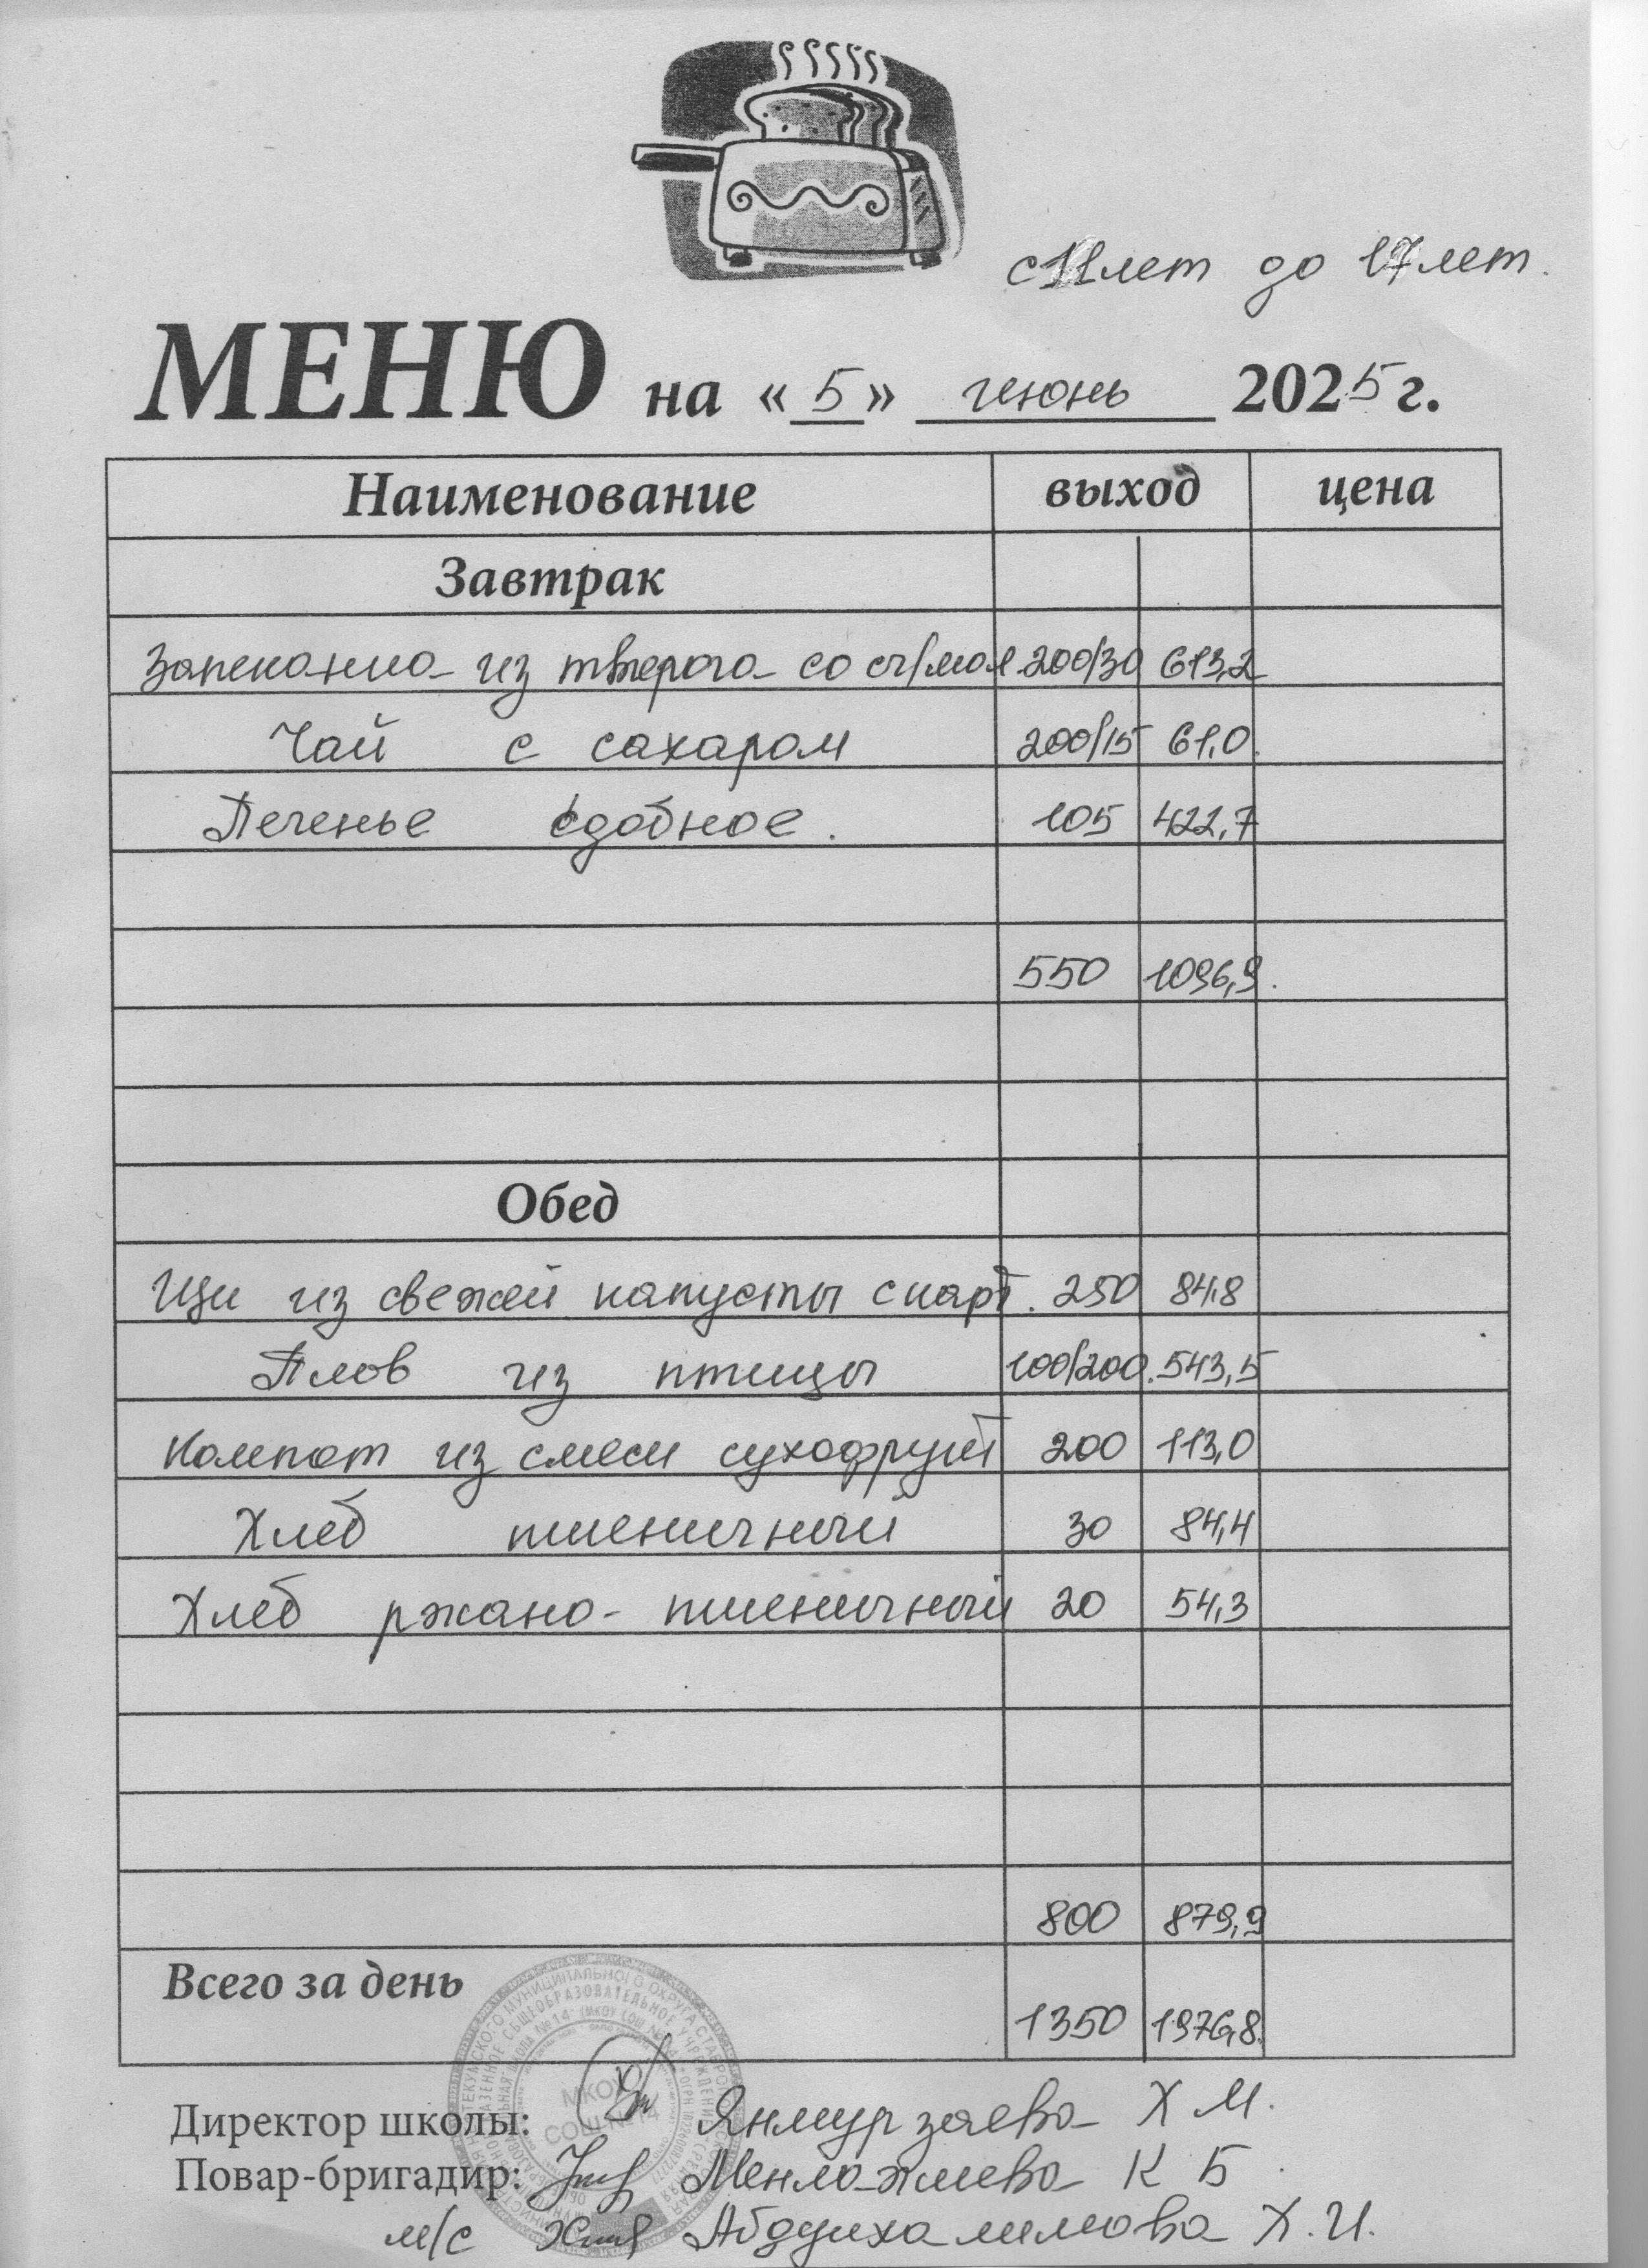 с 11 лет до 17 лет.
МЕНЮ на «5» июнь 2025 г.
Наименование выход цена
Завтрак
Запеканка из творога со сг/мол 200/30 613,2
Чай с сахаром 200/15 61,0.
Печенье сдобное. 105 422,7
550 1096,9.
Обед
Щи из свежей капусты с карт. 250 84,8
Плов из птицы 100/200. 543,5
Компот из смеси сухофрукт 200 113,0
Хлеб пшеничный 30 84,4
Хлеб ржано-пшеничный 20 54,3
800 879,9
Всего за день
1350 1976,8.
Директор школы: Янмурзаева Х М.
Повар-бригадир: Менлажиева К Б.
м/с Абдулхалимова Х.И.
МКОУ
СОШ №14